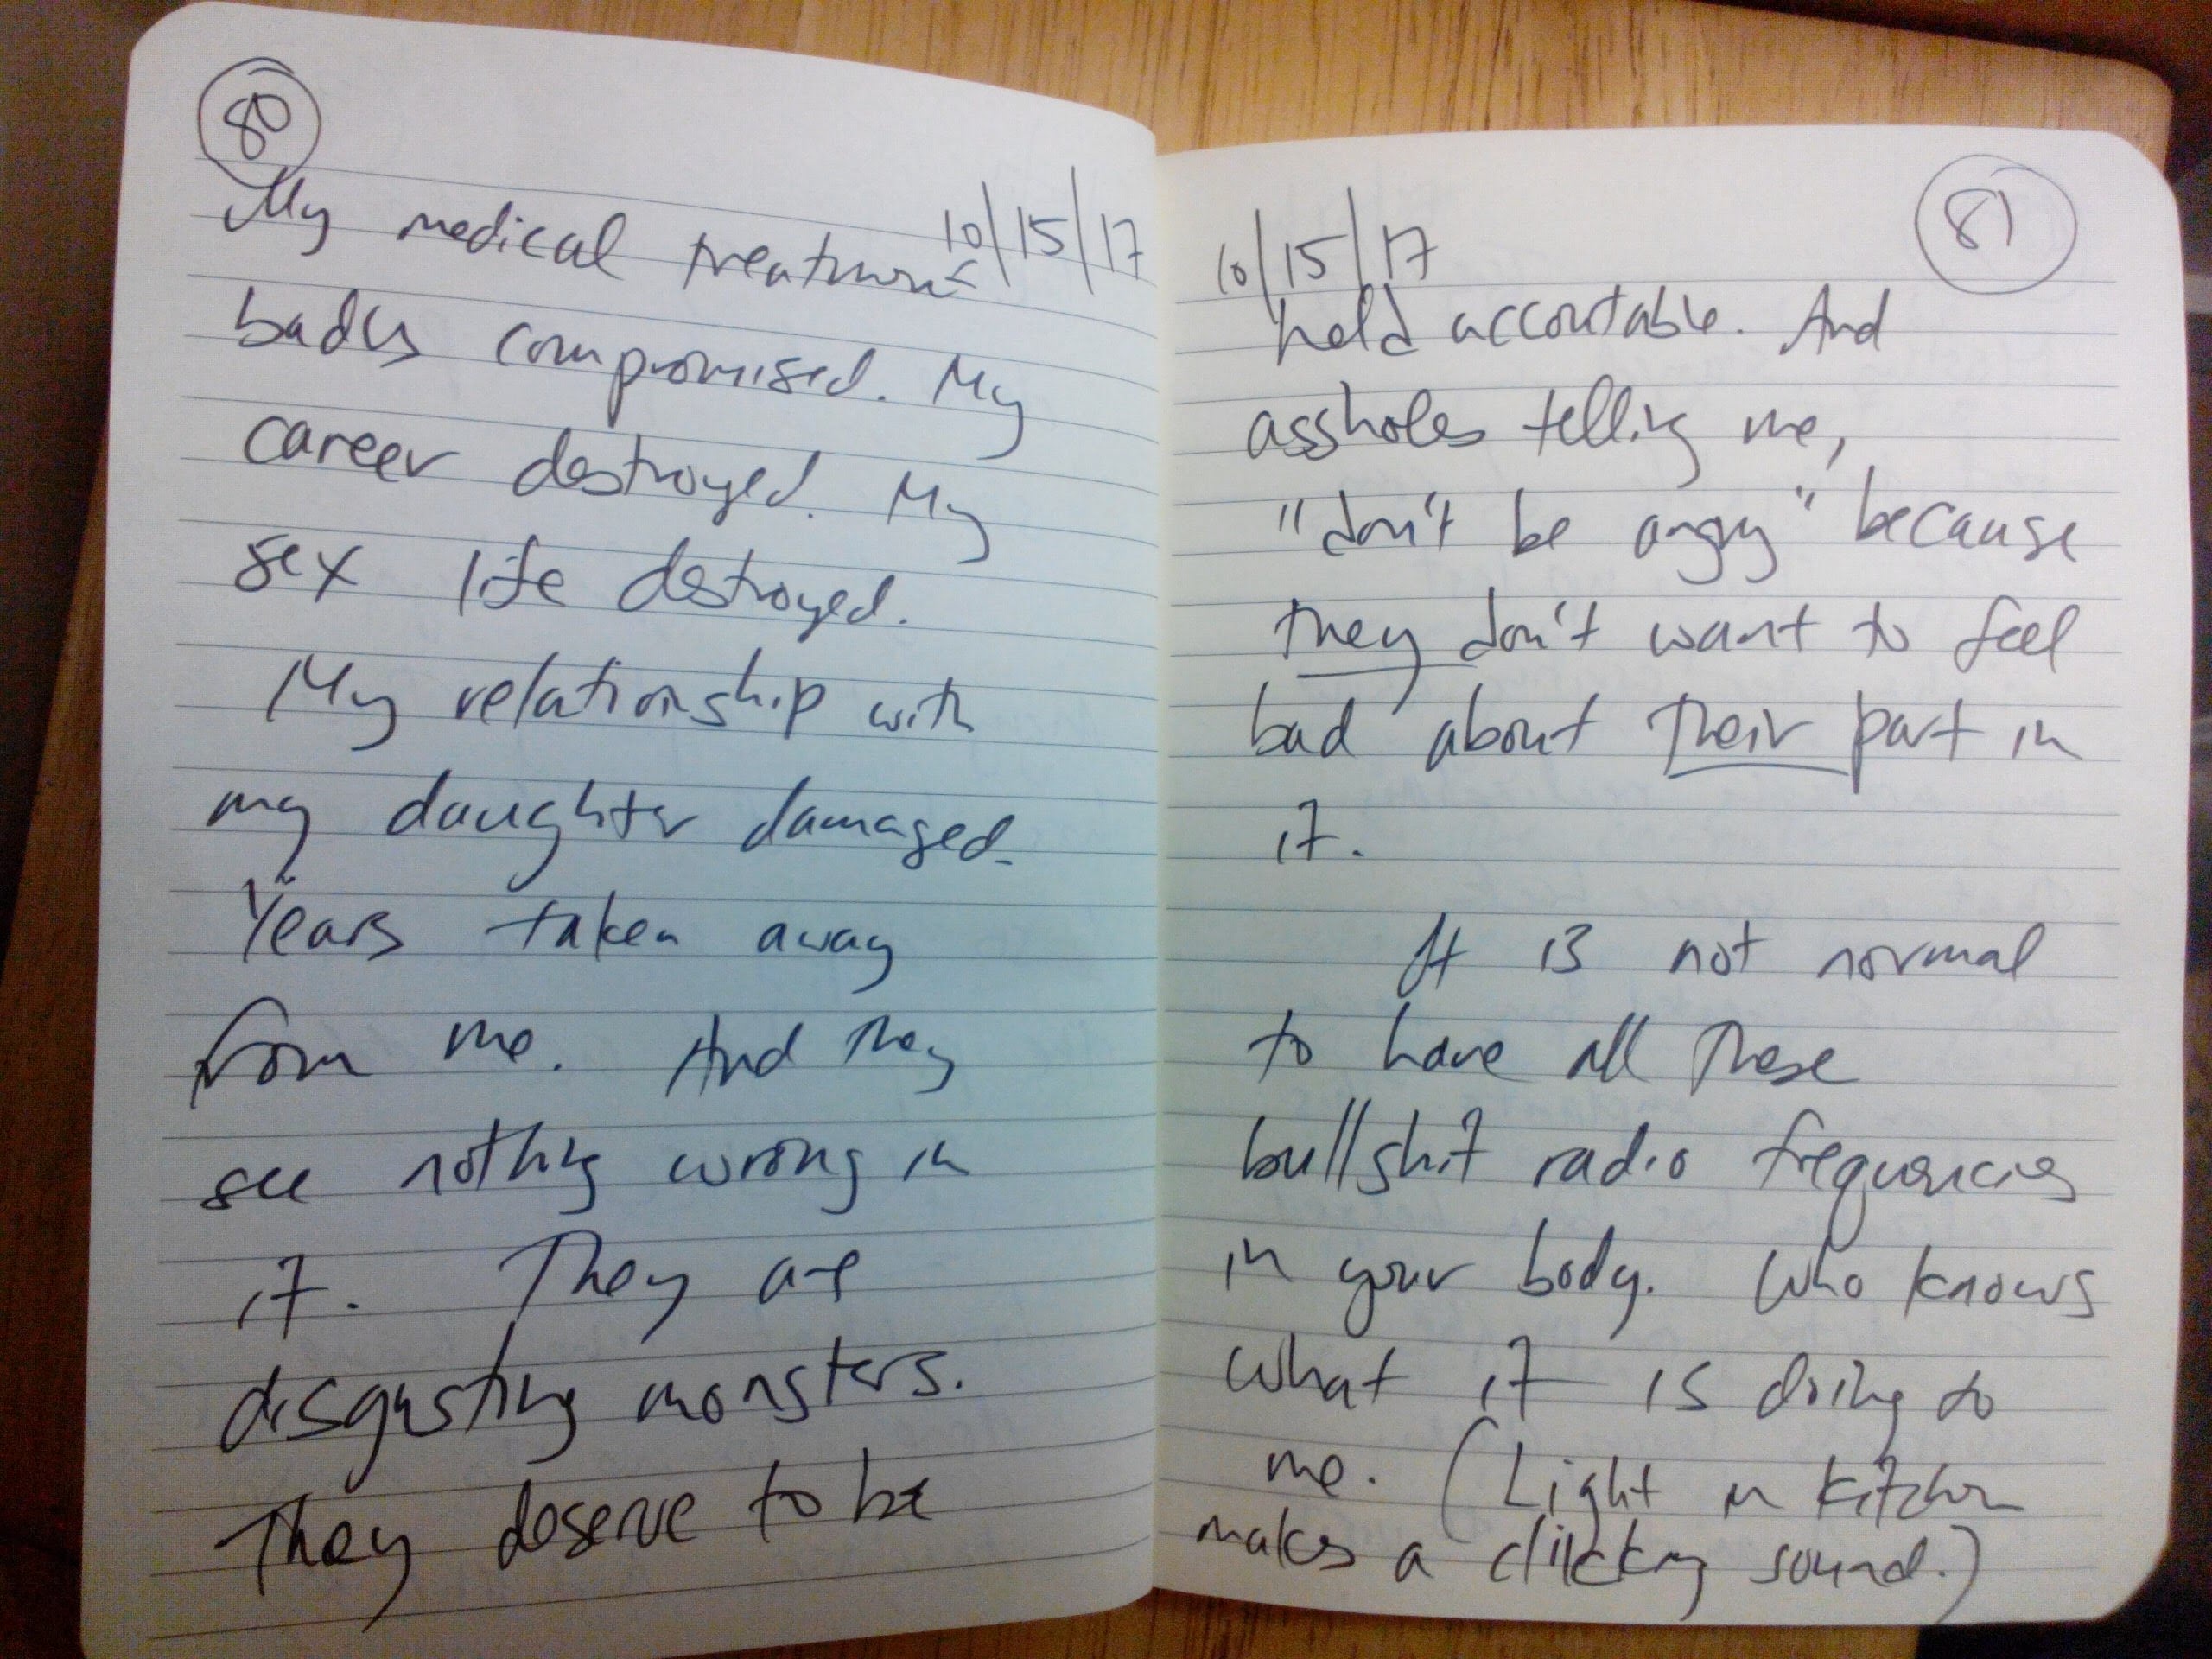 80
10/15/17
My medical treatment
badly compromised. My
career destroyed. My
sex life destroyed.
My relationship with
my daughter damaged.
Years taken away
from me. And they
see nothing wrong in
it. They are
disgusting monsters.
They deserve to be
81
10/15/17
held accountable. And
assholes telling me,
"don't be angry" because
they don't want to feel
bad about their part in
it.
It is not normal
to have all these
bullshit radio frequencies
in your body. Who knows
what it is doing to
me. (Light in kitchen
makes a clicking sound.)